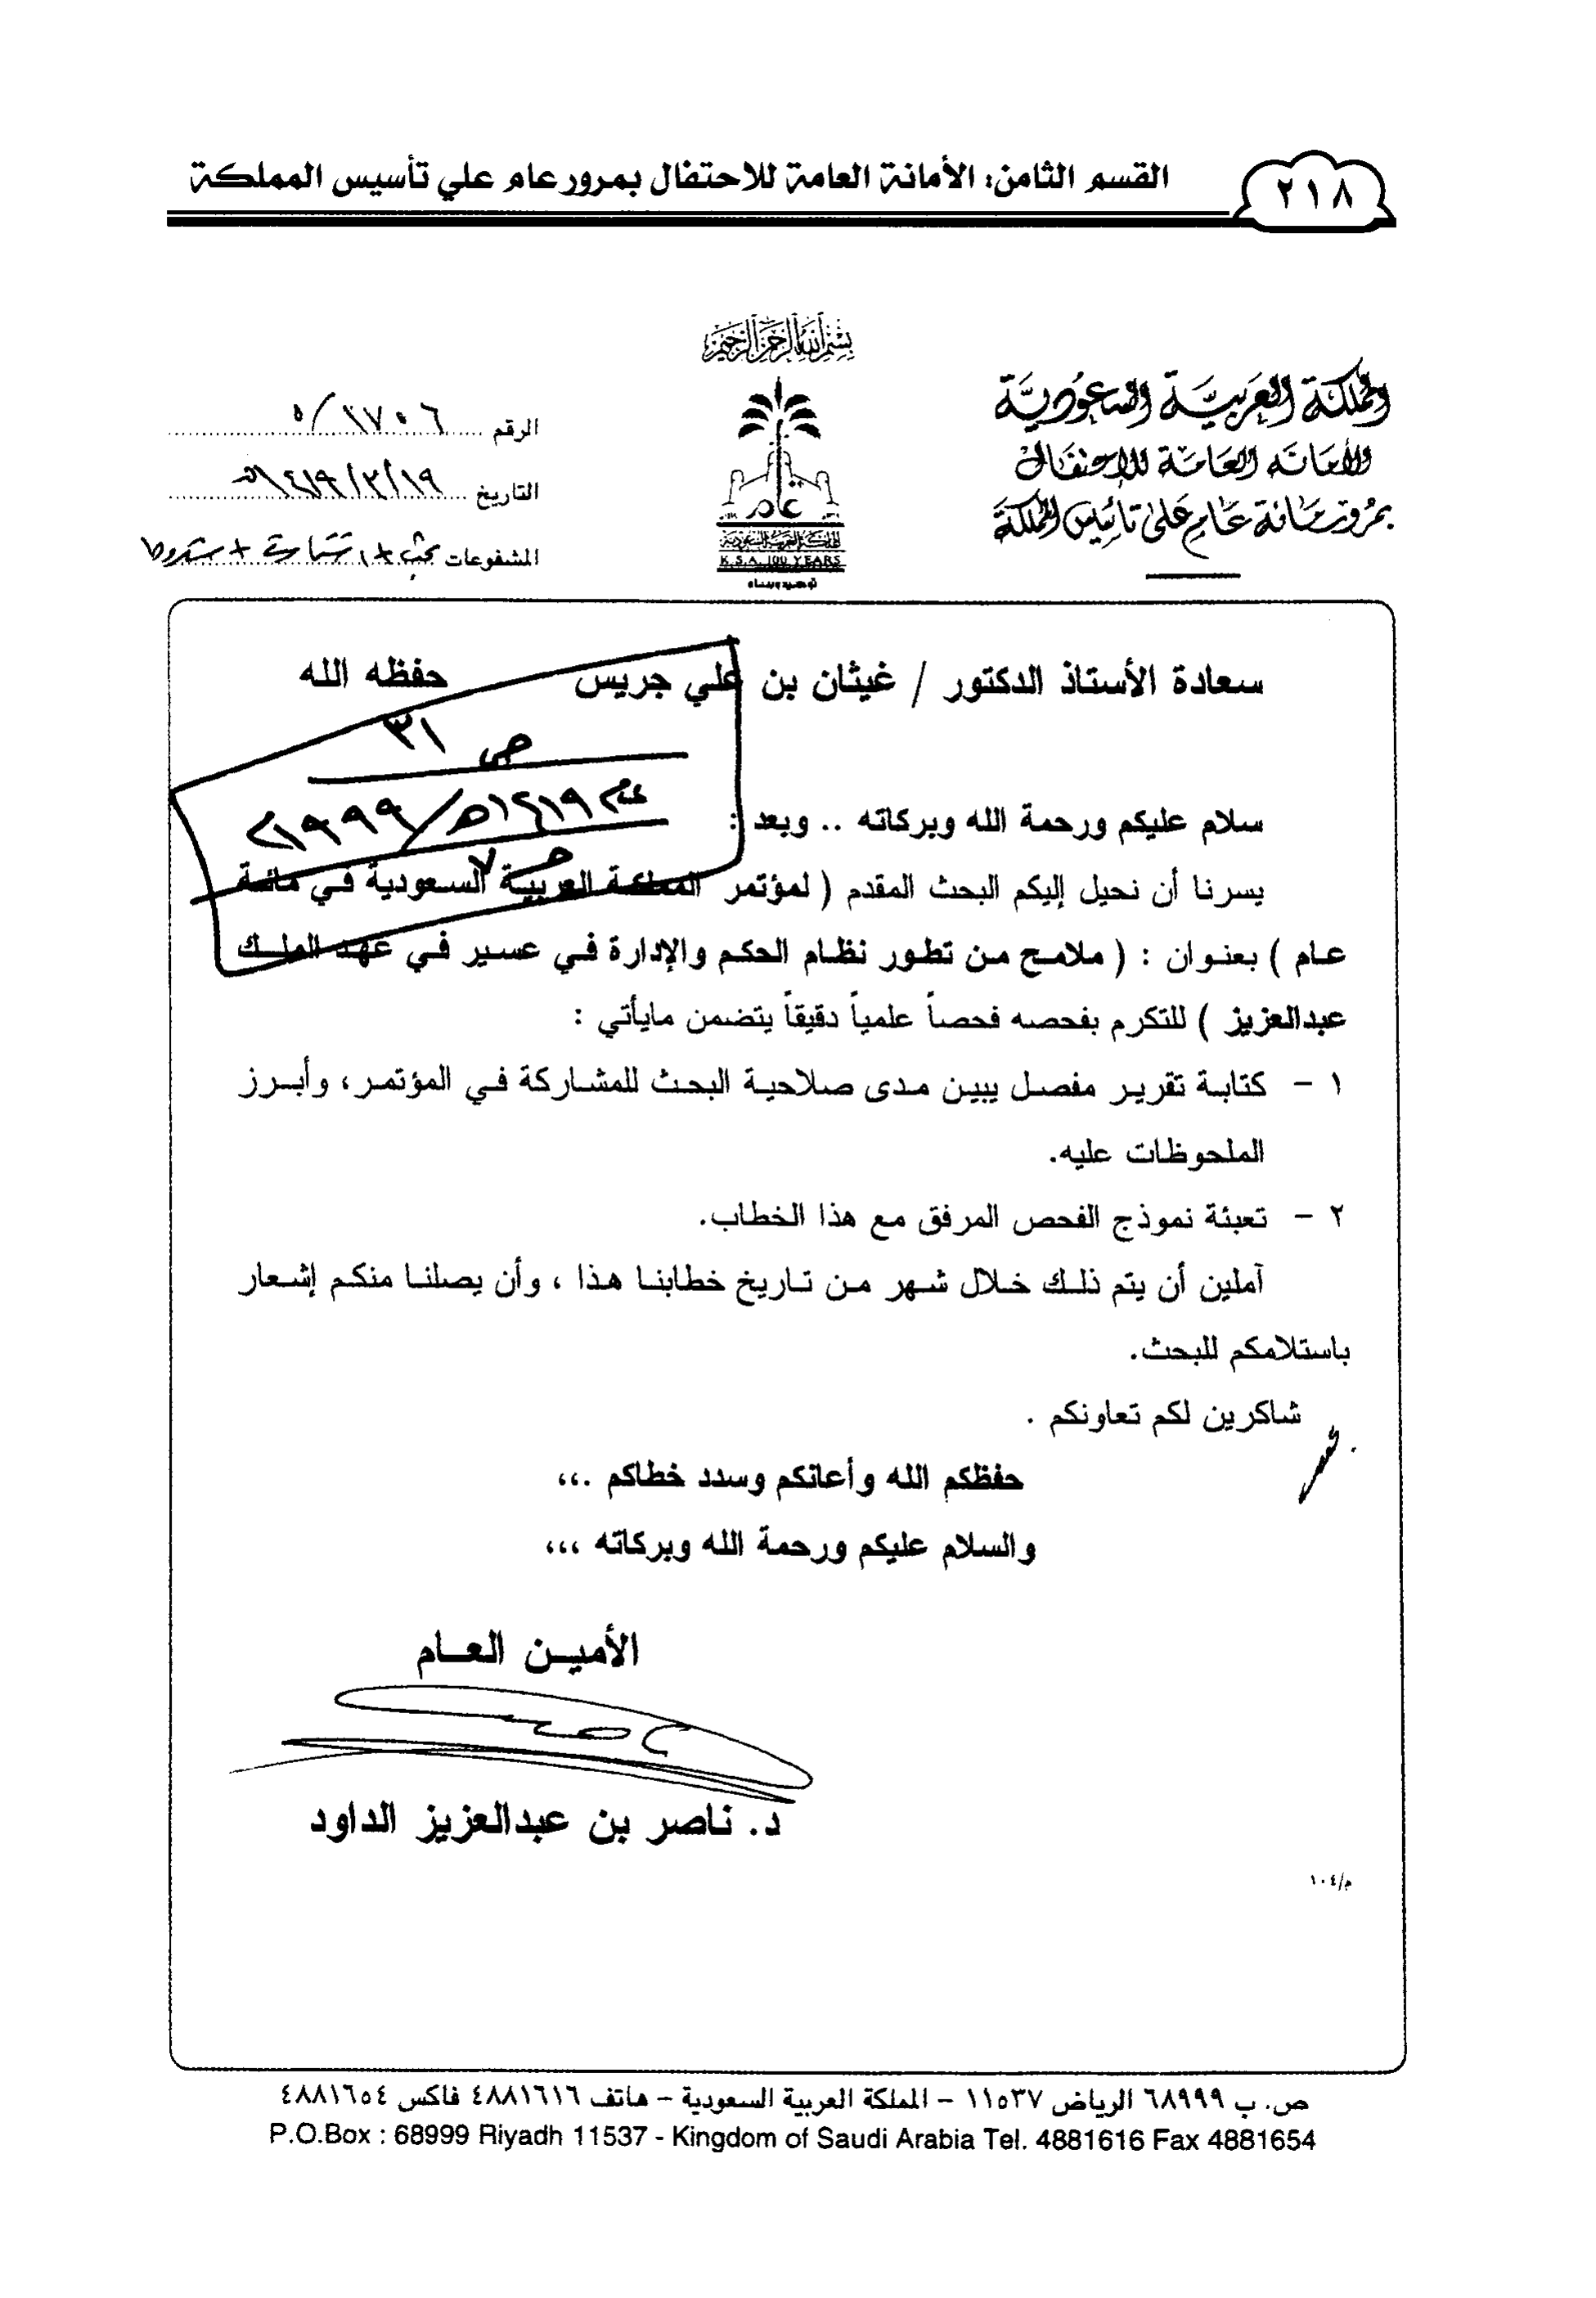 القسم الثامن: الأمانة العامة للاحتفال بمرور عام علي تأسيس المملكة
٢١٨
بسم الله الرحمن الرحيم
المملكة العربية السعودية
الأمانة العامة للاحتفال
بمرور مائة عام على تأسيس المملكة
عام
المملكة العربية السعودية
K.S.A. 100 YEARS
توحيد وبناء
الرقم
التاريخ ١٤١٩/٣/١٩هـ
المشفوعات بحث
سعادة الأستاذ الدكتور / غيثان بن علي جريس حفظه الله
ص ٣١
١٤١٩هـ/١٩٩٩م
سلام عليكم ورحمة الله وبركاته .. وبعد :
يسرنا أن نحيل إليكم البحث المقدم ( لمؤتمر المملكة العربية السعودية في مائة
عام ) بعنوان : ( ملامح من تطور نظام الحكم والإدارة في عسير في عهد الملك
عبدالعزيز ) للتكرم بفحصه فحصاً علمياً دقيقاً يتضمن مايأتي :
١ - كتابة تقرير مفصل يبين مدى صلاحية البحث للمشاركة في المؤتمر، وأبرز
الملحوظات عليه.
٢ - تعبئة نموذج الفحص المرفق مع هذا الخطاب.
آملين أن يتم ذلك خلال شهر من تاريخ خطابنا هذا ، وأن يصلنا منكم إشعار
باستلامكم للبحث.
شاكرين لكم تعاونكم .
حفظكم الله وأعانكم وسدد خطاكم .،،
والسلام عليكم ورحمة الله وبركاته ،،،
الأمين العام
د. ناصر بن عبدالعزيز الداود
م/١٠٤
ص. ب ٦٨٩٩٩ الرياض ١١٥٣٧ - المملكة العربية السعودية - هاتف ٤٨٨١٦١٦ فاكس ٤٨٨١٦٥٤
P.O.Box : 68999 Riyadh 11537 - Kingdom of Saudi Arabia Tel. 4881616 Fax 4881654